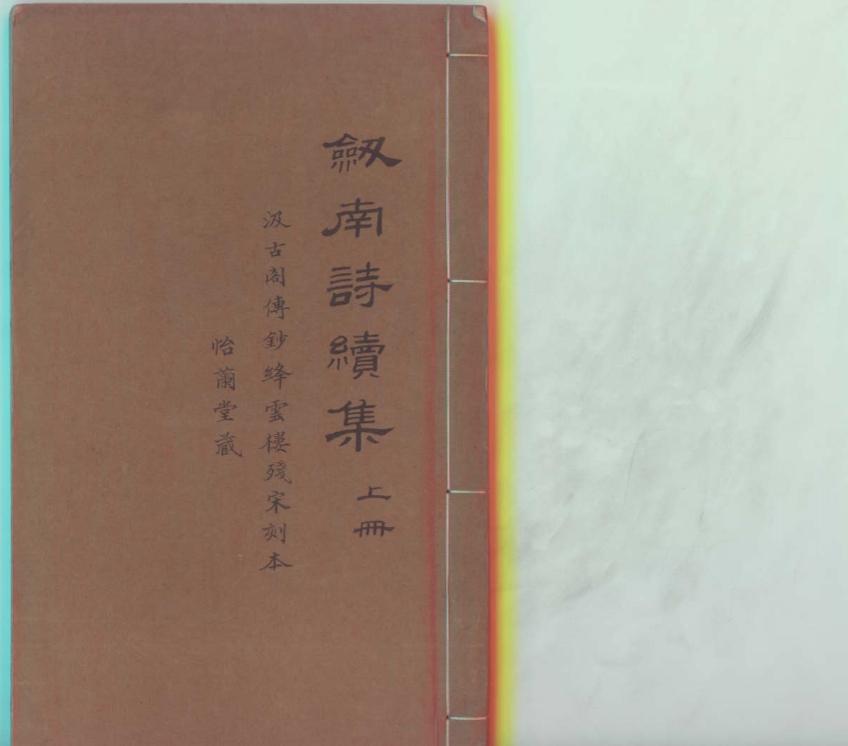 劔南詩續集 上冊
汲古阁傳鈔絳雲樓殘宋刻本
怡蘭堂藏